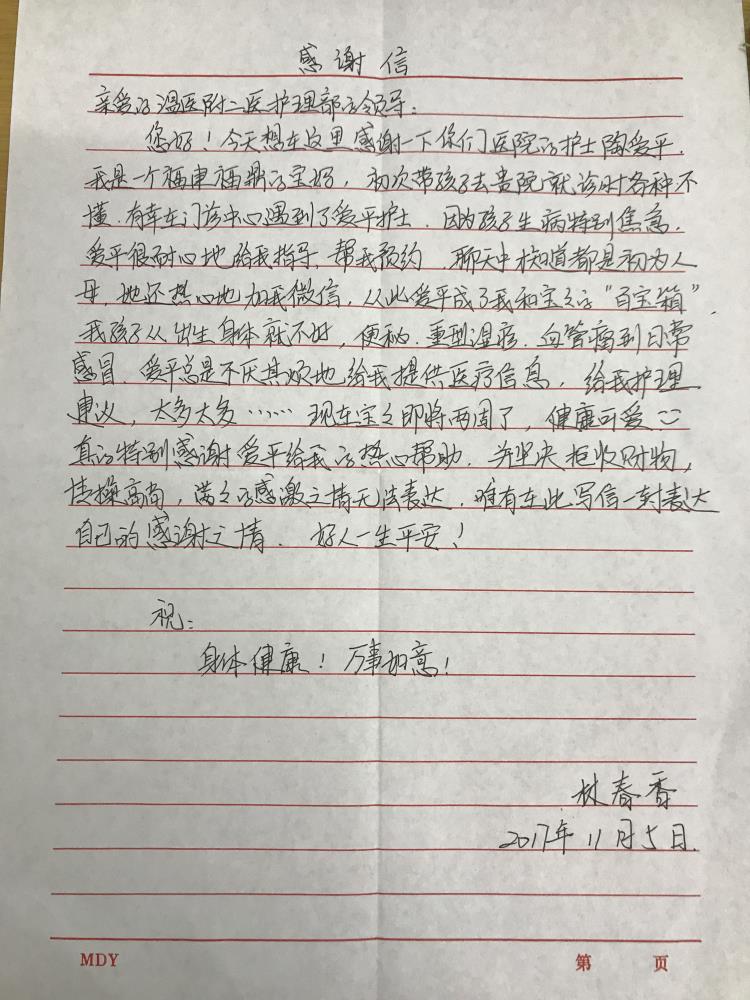 感谢信
亲爱的温医附二医护理部的领导:
您好!今天想在这里感谢一下你们医院的护士陶爱平.
我是一个福建福鼎的宝妈,初次带孩子去贵院就诊时各种不
懂.有幸在门诊中心遇到了爱平护士.因为孩子生病特别焦急.
爱平很耐心地给我指导、帮我预约.聊天中知道都是初为人
母,她还热心地加我微信,从此爱平成了我和宝宝的“百宝箱”,
我孩子从出生身体就不好,便秘.重型湿疹.血管瘤到日常
感冒.爱平总是不厌其烦地给我提供医疗信息,给我护理
建议,太多太多……现在宝宝即将两周了,健康可爱
真的特别感谢爱平给我的热心帮助.并坚决拒收财物,
情操高尚,满满的感激之情无法表达.唯有在此写信一封表达
自己的感谢之情.好人一生平安!
祝:
身体健康!万事如意!
林春香
2017年11月5日.
MDY 第 页